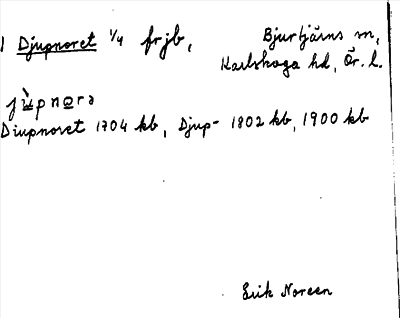 1 Djupnoret 1/4 frjb, Bjurtjärns sn,
Karlskoga hd, Ör. l.
jùpnora
Diupnoret 1704 kb, Djup- 1802 kb, 1900 kb
Erik Noreen